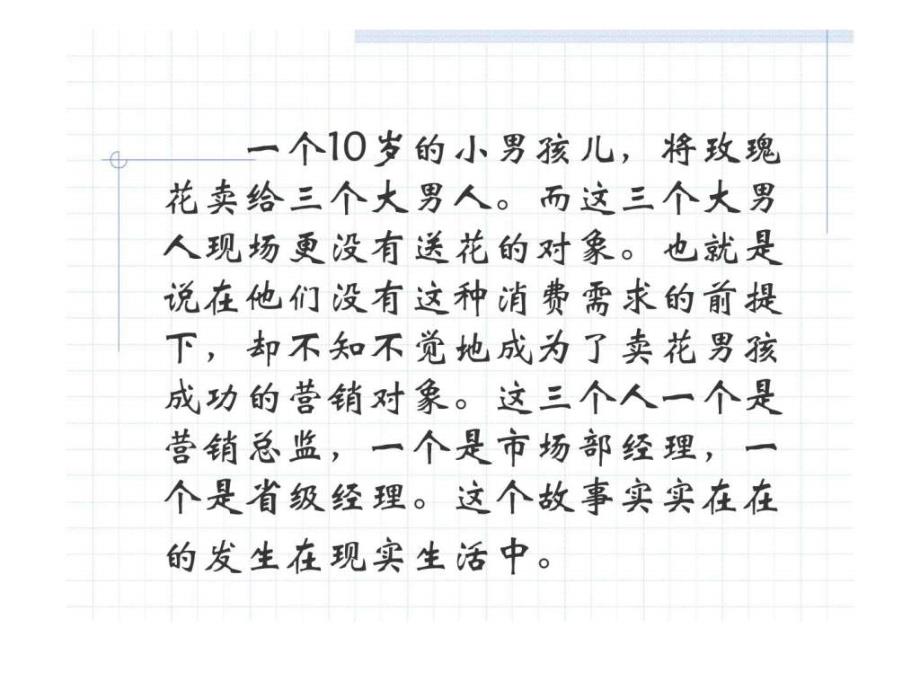 一个10岁的小男孩儿，将玫瑰
花卖给三个大男人。而这三个大男
人现场更没有送花的对象。也就是
说在他们没有这种消费需求的前提
下，却不知不觉地成为了卖花男孩
成功的营销对象。这三个人一个是
营销总监，一个是市场部经理，一
个是省级经理。这个故事实实在在
的发生在现实生活中。